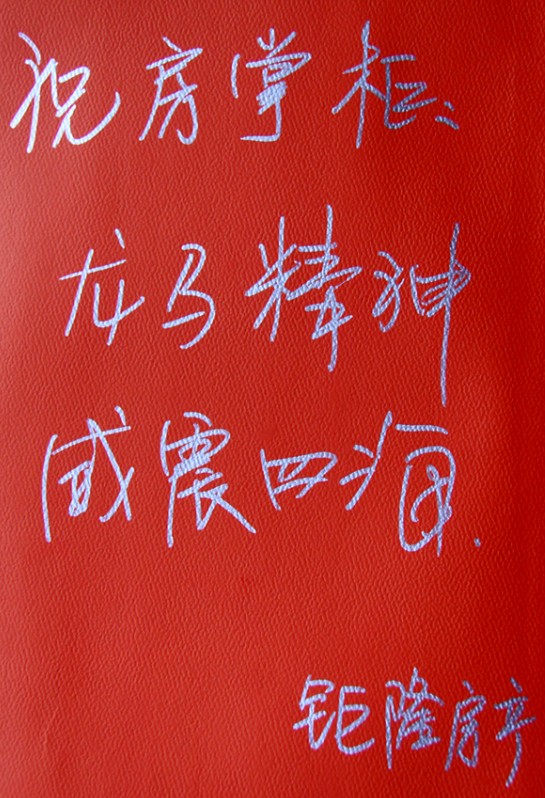 祝房掌柜、
龙马精神
威震四海.
钜隆房亭